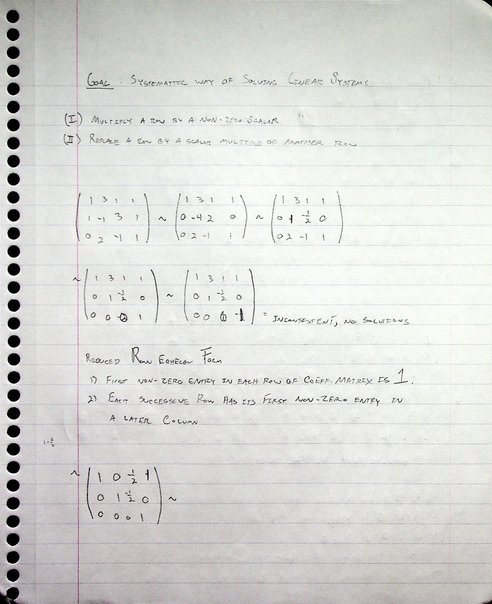 GOAL : SYSTEMATIC WAY OF SOLVING LINEAR SYSTEMS
(I) MULTIPLY A ROW BY A NON-ZERO SCALAR
(II) REPLACE A ROW BY A SCALAR MULTIPLE OF ANOTHER ROW
( 1 3 1 1 ) ( 1 3 1 1 ) ( 1 3 1 1 )
( 1 -1 3 1 ) ~ ( 0 -4 2 0 ) ~ ( 0 1 -1/2 0 )
( 0 2 -1 1 ) ( 0 2 -1 1 ) ( 0 2 -1 1 )
~ ( 1 3 1 1 ) ( 1 3 1 1 )
( 0 1 -1/2 0 ) ~ ( 0 1 -1/2 0 )
( 0 0 0 1 ) ( 0 0 0 1 ) = INCONSISTENT, NO SOLUTIONS
REDUCED ROW ECHELON FORM
1) FIRST NON-ZERO ENTRY IN EACH ROW OF COEFF. MATRIX IS 1.
2) EACH SUCCESSIVE ROW HAS ITS FIRST NON-ZERO ENTRY IN
A LATER COLUMN
1-1/2
~ ( 1 0 -1/2 1 )
( 0 1 -1/2 0 ) ~
( 0 0 0 1 )